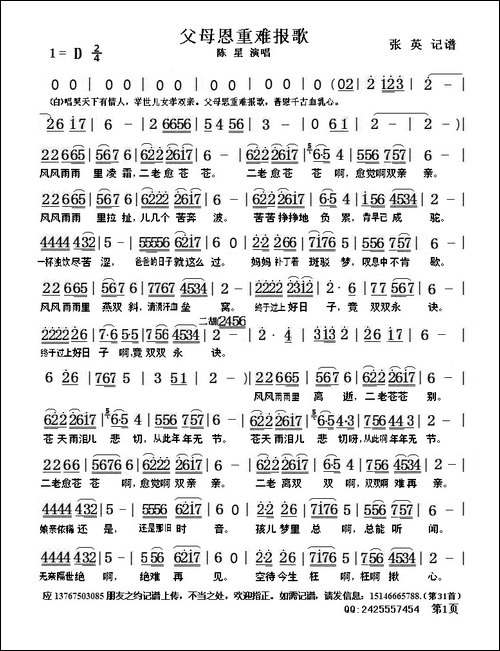 父母恩重难报歌
1 = D 2/4
陈 星 演唱
张 英 记谱
0 0 | 0 0 | 0 0 | 0 0 | 0 0 | 0 0 | 0 (02 | 2 123 | 2 - |
(白)唱哭天下有情人，举世儿女孝双亲。父母恩重难报歌，善恩千古血乳心。
26 17 | 6 - | 2 6656 | 5 4 56 | 3 - | 0 1 | 2 - | 2 - | 2 -) |
22665 | 5676 | 6222 2617 | 6 - | 6222 2617 | 6·5 4 | 556 757 | 6 - |
风风雨雨 里凌霜，二老愈苍 苍。 二老愈苍 苍 啊，愈觉啊双亲 亲。
22665 | 5676 | 6222 2617 | 6 - | 6222 2617 | 6·5 4 | 156 4534 | 2 - |
风风雨雨 里拉扯，儿几个 苦奔 波。 苦苦挣挣地 负 累，青早已 成 驼。
4444 432 | 5 - | 55556 6217 | 6 0 | 2222 226 | 7176 5 | 556 757 | 6 - |
一杯浊饮尽苦 涩， 爸爸的日子就这么 过。 妈妈 补丁着 斑驳 梦，叹息中不肯 歇。
22665 | 567 6 | 7767 4534 | 2 - | 2222 2312 | 2· 6 | 757 6532 | 2 - |
风风雨雨里 燕双 斜，清滴汗血 垒 窝。 终于过上好 日 子，竟 双双永 诀。
二胡 2456
22222 26 | 7·6 5·5 | 756 4534 | 2 - | 2 · 4 | 313 2 | 2 - | 2 - |
终于过上好日 子 啊,竟 双双 永 诀。
6 26 | 767 5 | 3 51 | 2 - | 2 - ) | 22665 | 567 6 | 6222 2617 | 6 - |
风风雨雨里 离 逝，二老苍苍 别。
6222 2617 | 6·5 4 | 556 757 | 6 - | 6222 2617 | 6·54·3 | 75644 3 | 2 - |
苍天雨泪儿 悲 切，从此年 年无 节。 苍天雨泪儿 悲切呀，从此啊年年无 节。
22 66 | 5676 6 | 6222 2617 | 6 - | 22665 | 567 6 | 756 4534 | 2 - |
二老恩爱苍 苍 啊，愈觉啊 双亲 亲。 二老 离双 双 啊，双双啊 难再 亲。
4444 432 | 5 - | 5556 6217 | 6 0 | 2222 26 | 7176 5 | 556 757 | 6 - |
娘亲依稀 还 是， 还是那旧 时 音。 孩儿 梦里 总 啊，总能 听 闻。
4444 432 | 5 - | 5556 6217 | 6 0 | 2222 26 | 7176 5 | 756 4534 | 2 - |
无亲隔世绝 啊， 绝难 再 见。 空待今生 枉 啊，枉啊 揪 心。
应 13767503085 朋友之约记谱上传，不当之处，欢迎指正。如需记谱，请发信息：15146665788.（第31首）
QQ:2425557454 第1页